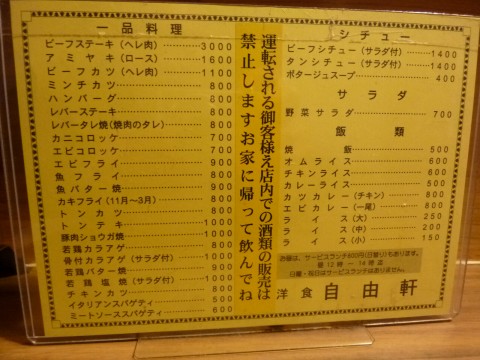 一品料理
ビーフステーキ（ヘレ肉）…………3000
アミヤキ（ロース）…………1600
ビーフカツ（ヘレ肉）…………1100
ミンチカツ…………800
ハンバーグ…………800
レバーステーキ…………800
レバータレ焼（焼肉のタレ）…………800
カニコロッケ…………700
エビコロッケ…………700
エビフライ…………900
魚フライ…………800
魚バター焼…………900
カキフライ（11月〜3月）…………800
トンカツ…………800
トンテキ…………1000
豚肉ショウガ焼…………1000
若鶏カラアゲ…………800
骨付カラアゲ（サラダ付）…………1000
若鶏バター焼…………900
若鶏塩焼（サラダ付）…………1000
チキンカツ…………800
イタリアンスパゲティ…………500
ミートソーススパゲティ…………600
運転される御客様え店内での酒類の販売は
禁止しますお家に帰って飲んでね
シチュー
ビーフシチュー（サラダ付）…………1400
タンシチュー（サラダ付）…………1400
ポタージュスープ…………400
サラダ
野菜サラダ…………700
飯類
焼飯…………500
オムライス…………600
チキンライス…………600
カレーライス…………500
カツカレー（チキン）…………800
エビカレー（一尾）…………800
ライス（大）…………250
ライス（中）…………200
ライス（小）…………150
お昼は、サービスランチ800円(日替り)も有ります。
昼12時〜14時迄
日曜・祝日はサービスランチは有りません。
洋食 自由軒